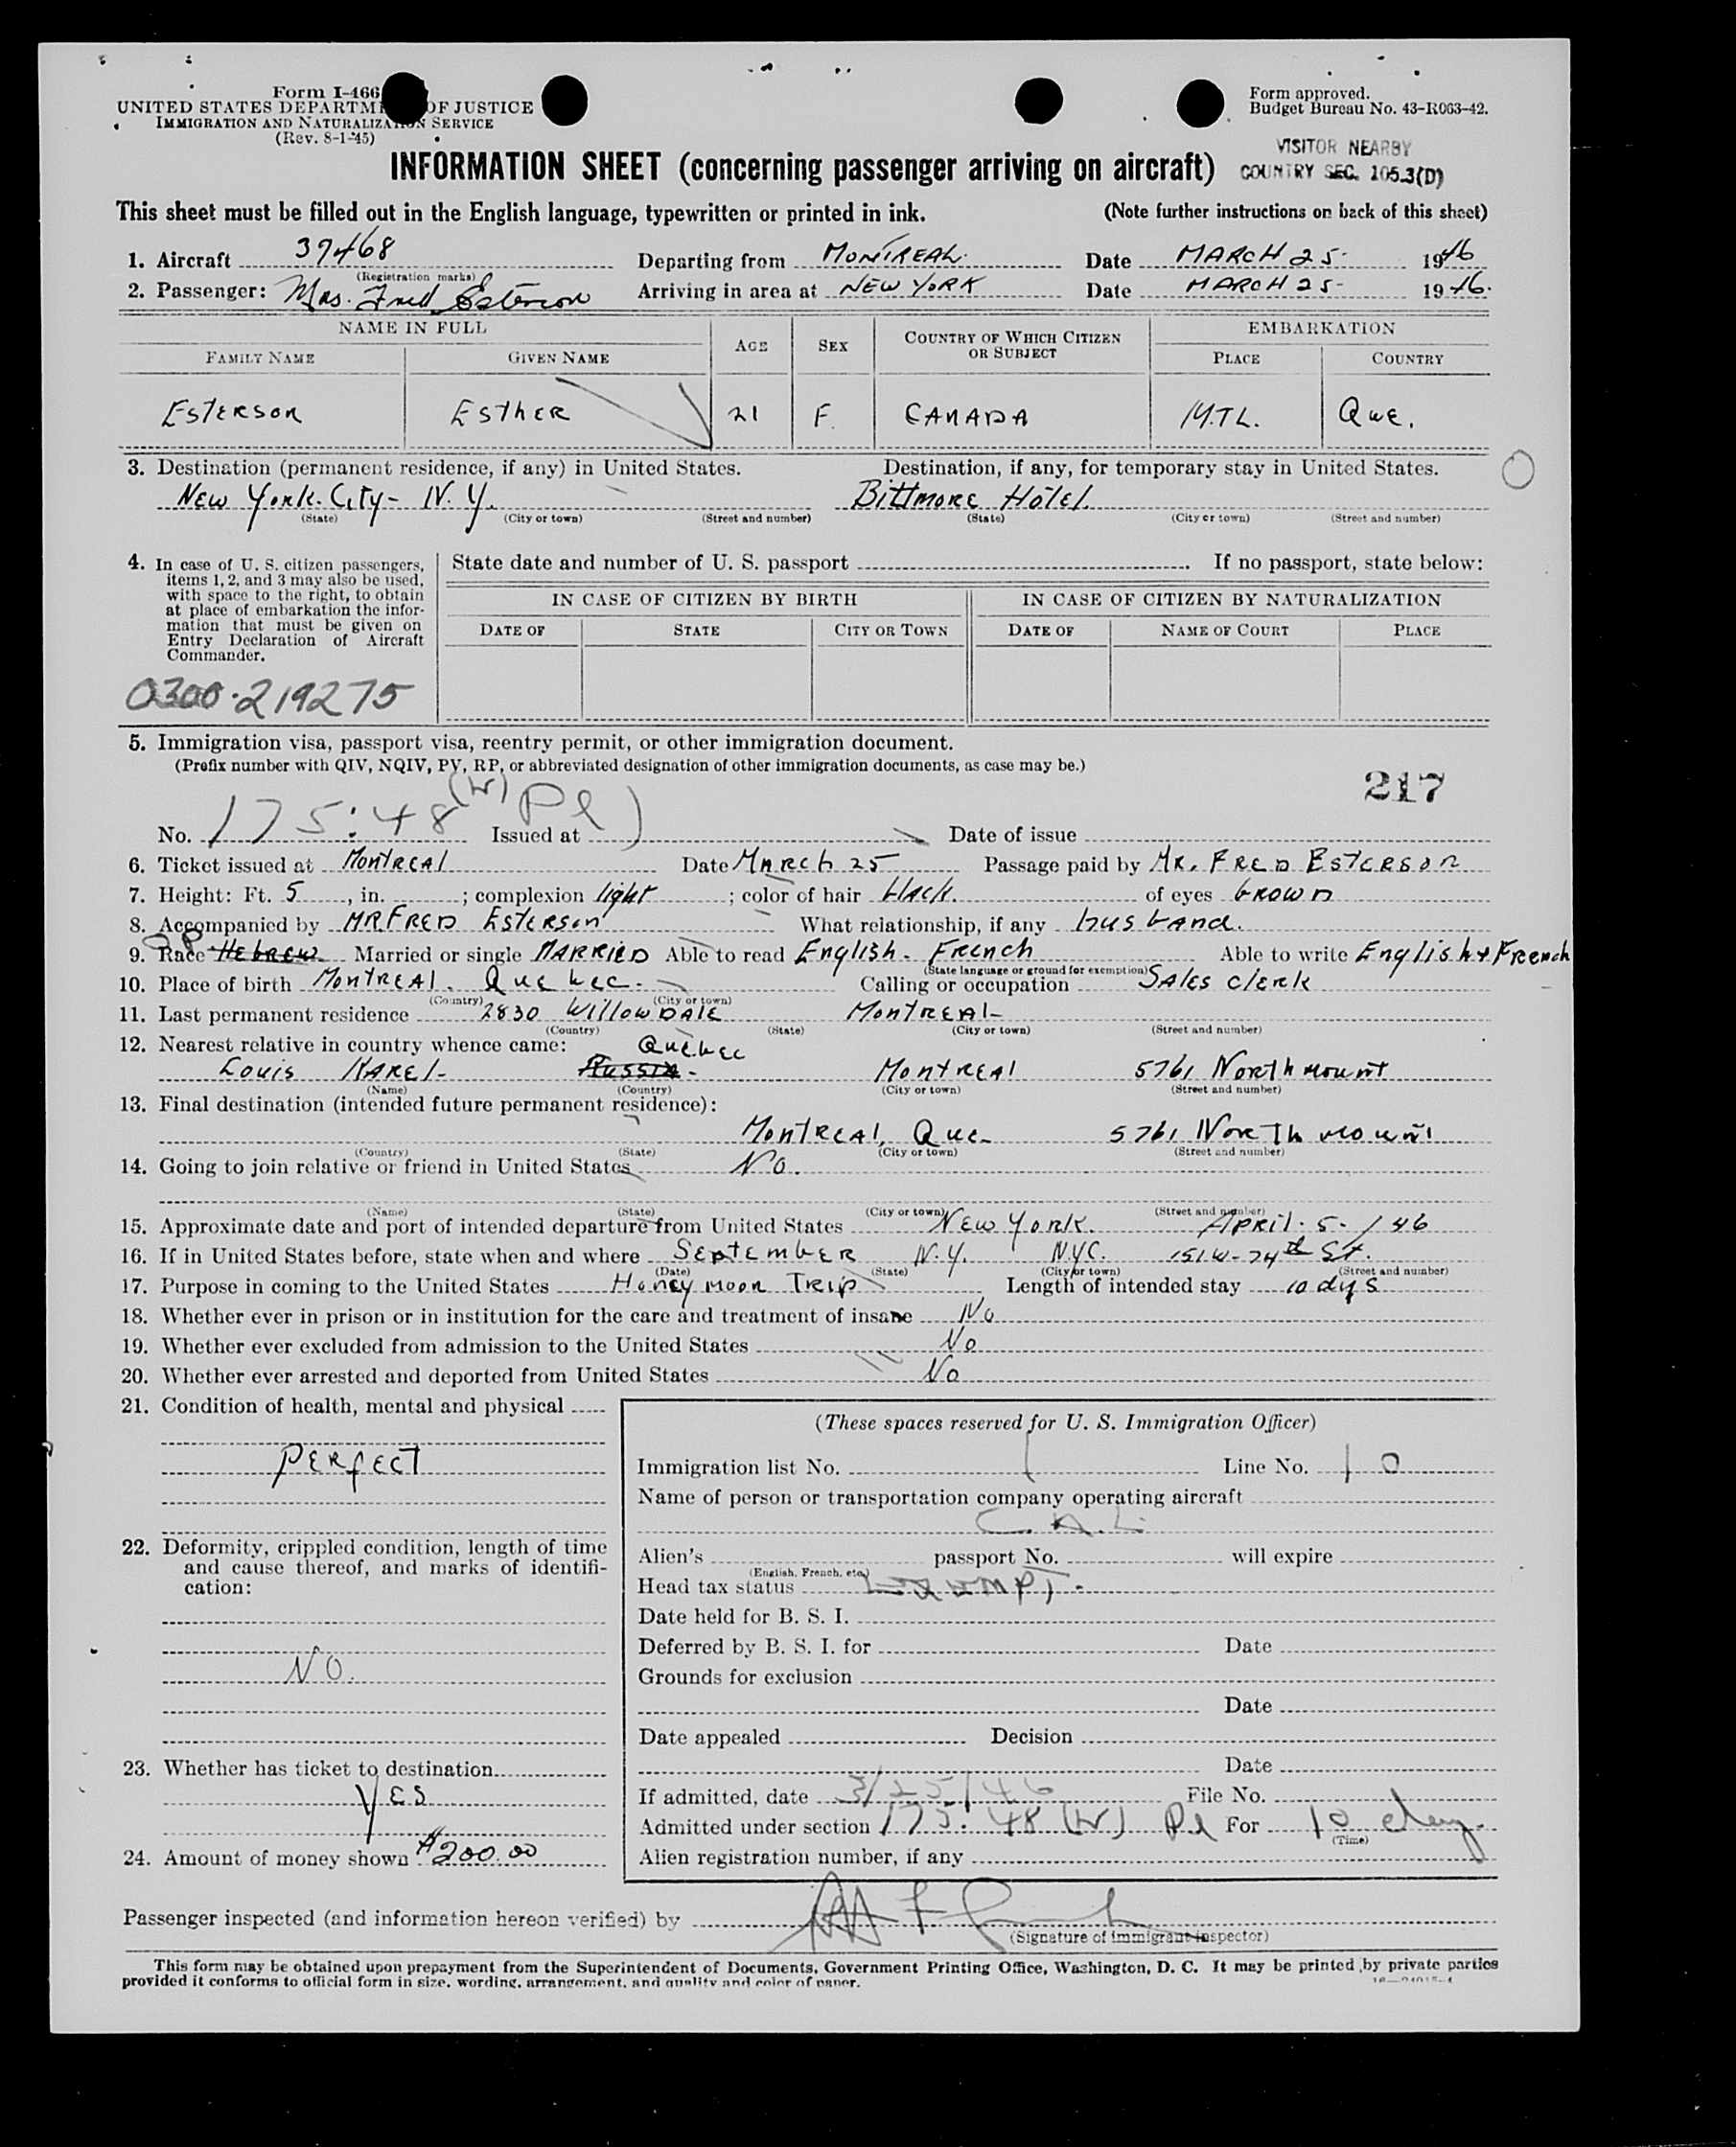 Form I-466
UNITED STATES DEPARTMENT OF JUSTICE
IMMIGRATION AND NATURALIZATION SERVICE
(Rev. 8-1-45)
Form approved.
Budget Bureau No. 43-R063-42.
VISITOR NEARBY
COUNTRY SEC. 105.3(D)
INFORMATION SHEET (concerning passenger arriving on aircraft)
This sheet must be filled out in the English language, typewritten or printed in ink. (Note further instructions on back of this sheet)
1. Aircraft 37468 Departing from MONTREAL. Date MARCH 25- 1946
(Registration marks)
2. Passenger: Mrs. Fred Esterson Arriving in area at NEW YORK Date MARCH 25- 1946.
NAME IN FULL AGE SEX COUNTRY OF WHICH CITIZEN OR SUBJECT EMBARKATION
FAMILY NAME GIVEN NAME PLACE COUNTRY
ESTERSON ESTHER 21 F. CANADA MTL. QUE.
3. Destination (permanent residence, if any) in United States. Destination, if any, for temporary stay in United States.
NEW York. City- N.Y. BiltmoRE Hotel.
(State) (City or town) (Street and number) (State) (City or town) (Street and number)
4. In case of U. S. citizen passengers,
items 1, 2, and 3 may also be used,
with space to the right, to obtain
at place of embarkation the infor-
mation that must be given on
Entry Declaration of Aircraft
Commander.
State date and number of U. S. passport If no passport, state below:
IN CASE OF CITIZEN BY BIRTH IN CASE OF CITIZEN BY NATURALIZATION
DATE OF STATE CITY OR TOWN DATE OF NAME OF COURT PLACE
0300-219275
5. Immigration visa, passport visa, reentry permit, or other immigration document.
(Prefix number with QIV, NQIV, PV, RP, or abbreviated designation of other immigration documents, as case may be.)
217
No. 175:48 (W) Pl) Issued at Date of issue
6. Ticket issued at MONTREAL Date MARCH 25 Passage paid by MR. FRED ESTERSON
7. Height: Ft. 5, in. ; complexion light ; color of hair black. of eyes brown
8. Accompanied by MR FRED ESTERSON What relationship, if any husband.
9. Race HEbREW Married or single MARRIED Able to read English - French Able to write English & French
(State language or ground for exemption)
10. Place of birth MONTREAL. Quebec. Calling or occupation SALES clerk
(Country) (City or town)
11. Last permanent residence 2830 WillowDALE MONTREAL-
(Country) (State) (City or town) (Street and number)
12. Nearest relative in country whence came: Quebec
Louis KAREL- Russia- MONTREAL 5761 Northmount
(Name) (Country) (City or town) (Street and number)
13. Final destination (intended future permanent residence):
MONTREAL, Que- 5761 Northmount
(Country) (State) (City or town) (Street and number)
14. Going to join relative or friend in United States No.
(Name) (State) (City or town) (Street and number)
15. Approximate date and port of intended departure from United States NEW York. APRIL. 5-/46
16. If in United States before, state when and where SEPTEMBER N.Y. NYC. 151 W-74th St.
(Date) (State) (City or town) (Street and number)
17. Purpose in coming to the United States Honeymoon Trip Length of intended stay 10 dys
18. Whether ever in prison or in institution for the care and treatment of insane No
19. Whether ever excluded from admission to the United States No
20. Whether ever arrested and deported from United States No
21. Condition of health, mental and physical
PERfECT
22. Deformity, crippled condition, length of time
and cause thereof, and marks of identifi-
cation:
NO.
23. Whether has ticket to destination
YES
24. Amount of money shown $200.00
(These spaces reserved for U. S. Immigration Officer)
Immigration list No. 1 Line No. 10
Name of person or transportation company operating aircraft
C. A. L.
Alien's passport No. will expire
(English, French, etc.)
Head tax status Exempt.
Date held for B. S. I.
Deferred by B. S. I. for Date
Grounds for exclusion
Date
Date appealed Decision
Date
If admitted, date 3/25/46 File No.
Admitted under section 175.48 (W) Pl For 10 days.
(Time)
Alien registration number, if any
Passenger inspected (and information hereon verified) by
(Signature of immigrant inspector)
This form may be obtained upon prepayment from the Superintendent of Documents, Government Printing Office, Washington, D. C. It may be printed by private parties
provided it conforms to official form in size, wording, arrangement, and quality and color of paper.